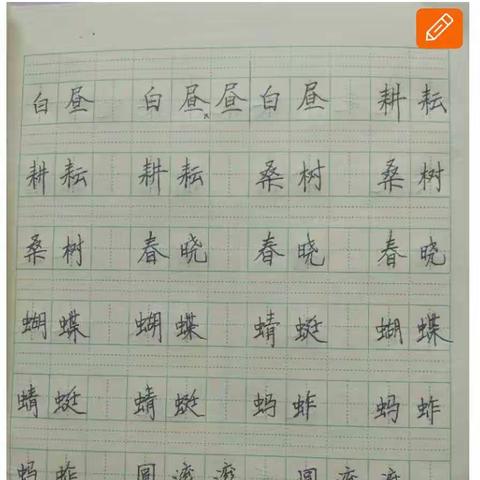 白昼 白昼昼 白昼 耕耘
耕耘 耕耘 桑树 桑树
桑树 春晓 春晓 春晓
蝴蝶 蝴蝶 蜻蜓 蝴蝶
蜻蜓 蜻蜓 蚂蚱 蚂蚱
蚂蚱 圆滚滚 圆滚滚